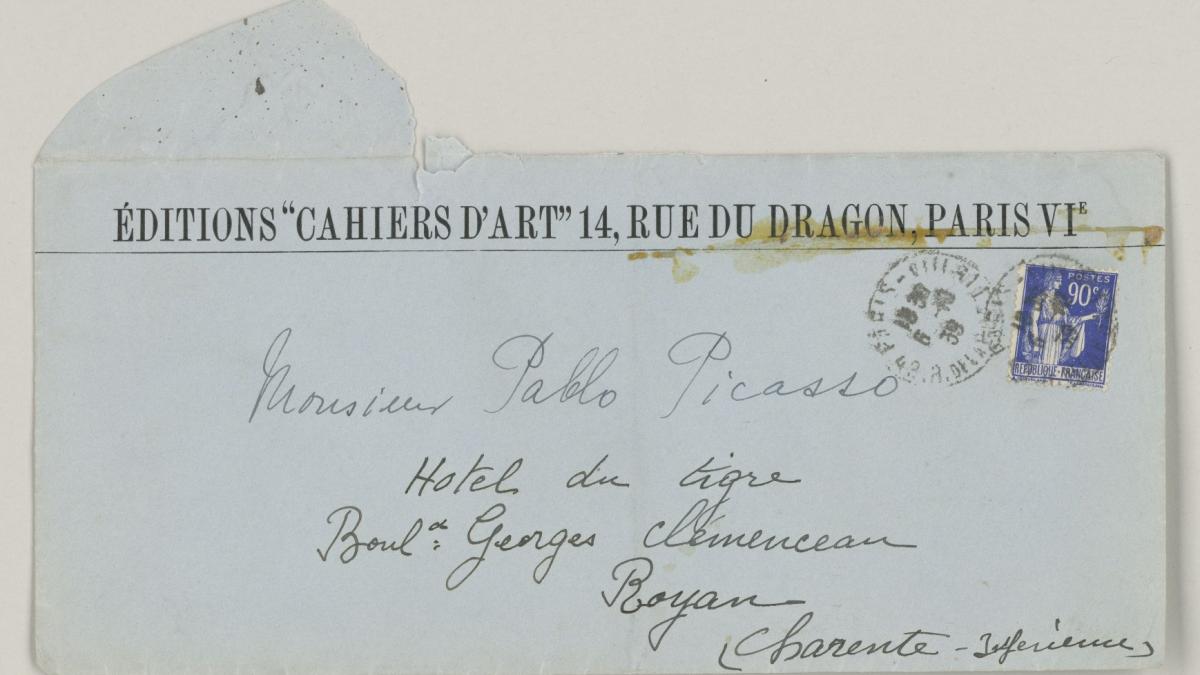 ÉDITIONS "CAHIERS D'ART" 14, RUE DU DRAGON, PARIS VIE
POSTES
90c
RÉPUBLIQUE-FRANÇAISE
Monsieur Pablo Picasso
Hotel du tigre
Bould: Georges Clémenceau
Royan
(Charente-Inférieure)